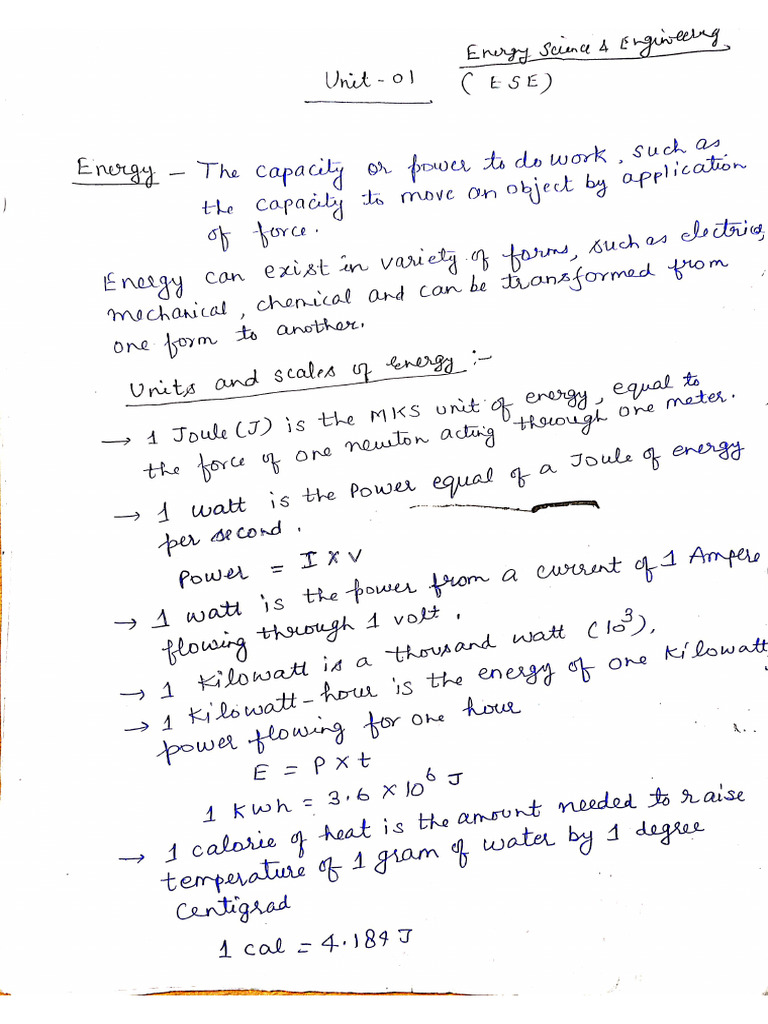 Energy Science & Engineering
Unit - 01 (ESE)
Energy - The capacity or power to do work, such as
the capacity to move an object by application
of force.
Energy can exist in variety of forms, such as electrica,
mechanical, chemical and can be transformed from
one form to another.
Units and scales of energy :-
→ 1 Joule (J) is the MKS unit of energy, equal to
the force of one newton acting through one meter.
→ 1 watt is the Power equal of a Joule of energy
per second.
Power = I × V
→ 1 watt is the power from a current of 1 Ampere
flowing through 1 volt.
→ 1 Kilowatt is a thousand watt (10³).
→ 1 Kilowatt-hour is the energy of one Kilowatt
power flowing for one hour
E = P × t
1 Kwh = 3.6 × 10⁶ J
→ 1 calorie of heat is the amount needed to raise
temperature of 1 gram of water by 1 degree
Centigrad
1 cal = 4.184 J